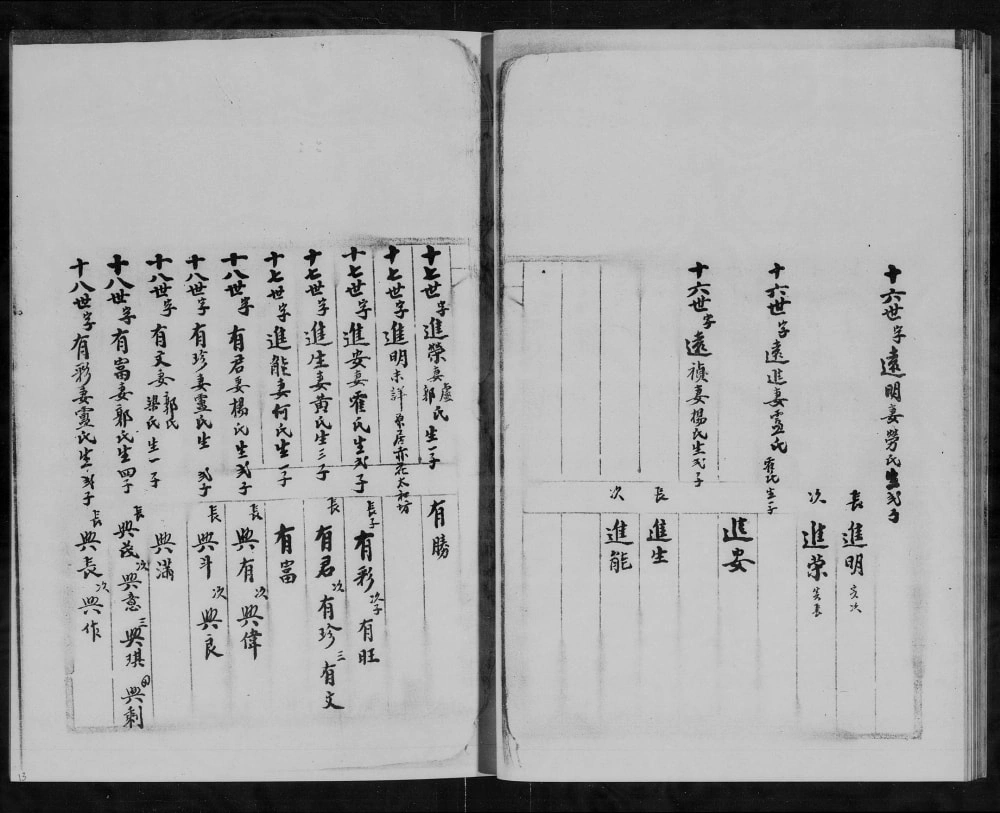 十六世字遠明妻勞氏生弍子
長進明
次進榮
十六世字遠進妻盧氏霍氏生一子
進安
十六世字遠禎妻楊氏生弍子
長進生
次進能
十七世字進榮妻盧郭氏生一子
有勝
十七世字進明未詳
十七世字進安妻霍氏生弍子
長子有彩次子有旺
十七世字進生妻黃氏生三子
長有君次有珍三有文
十七世字進能妻何氏生一子
有富
十八世字有君妻楊氏生弍子
長典有次典偉
十八世字有珍妻盧氏生弍子
長典斗次典良
十八世字有文妻郭氏梁氏生一子
典滿
十八世字有富妻郭氏生四子
長典茂次典意三典琪四典剩
十八世字有彩妻盧氏生弍子
長典長次典作
13